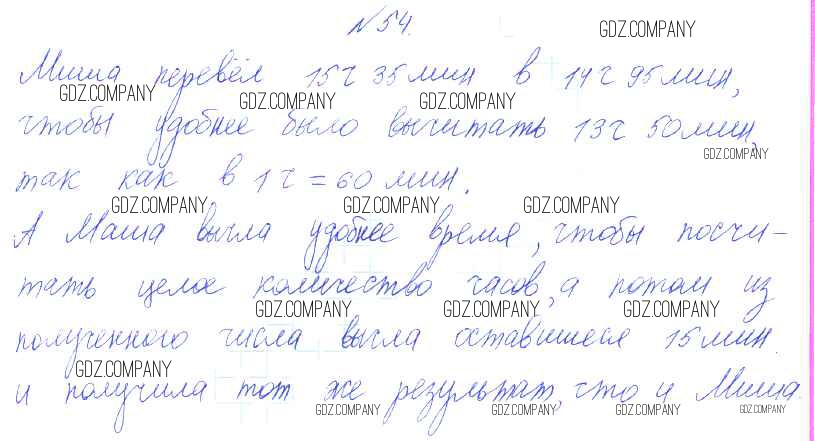 №54. GDZ.COMPANY
Миша перевёл 15ч 35мин в 14ч 95мин,
GDZ.COMPANY GDZ.COMPANY GDZ.COMPANY
чтобы удобнее было вычитать 13ч 50мин,
GDZ.COMPANY
так как в 1ч = 60 мин.
GDZ.COMPANY GDZ.COMPANY GDZ.COMPANY
А Маша вычла удобнее время, чтобы посчи-
тать целое количество часов, а потом из
GDZ.COMPANY GDZ.COMPANY GDZ.COMPANY
полученного числа вычла оставшиеся 15мин
GDZ.COMPANY
и получила тот же результат, что и Миша.
GDZ.COMPANY GDZ.COMPANY GDZ.COMPANY GDZ.COMPANY